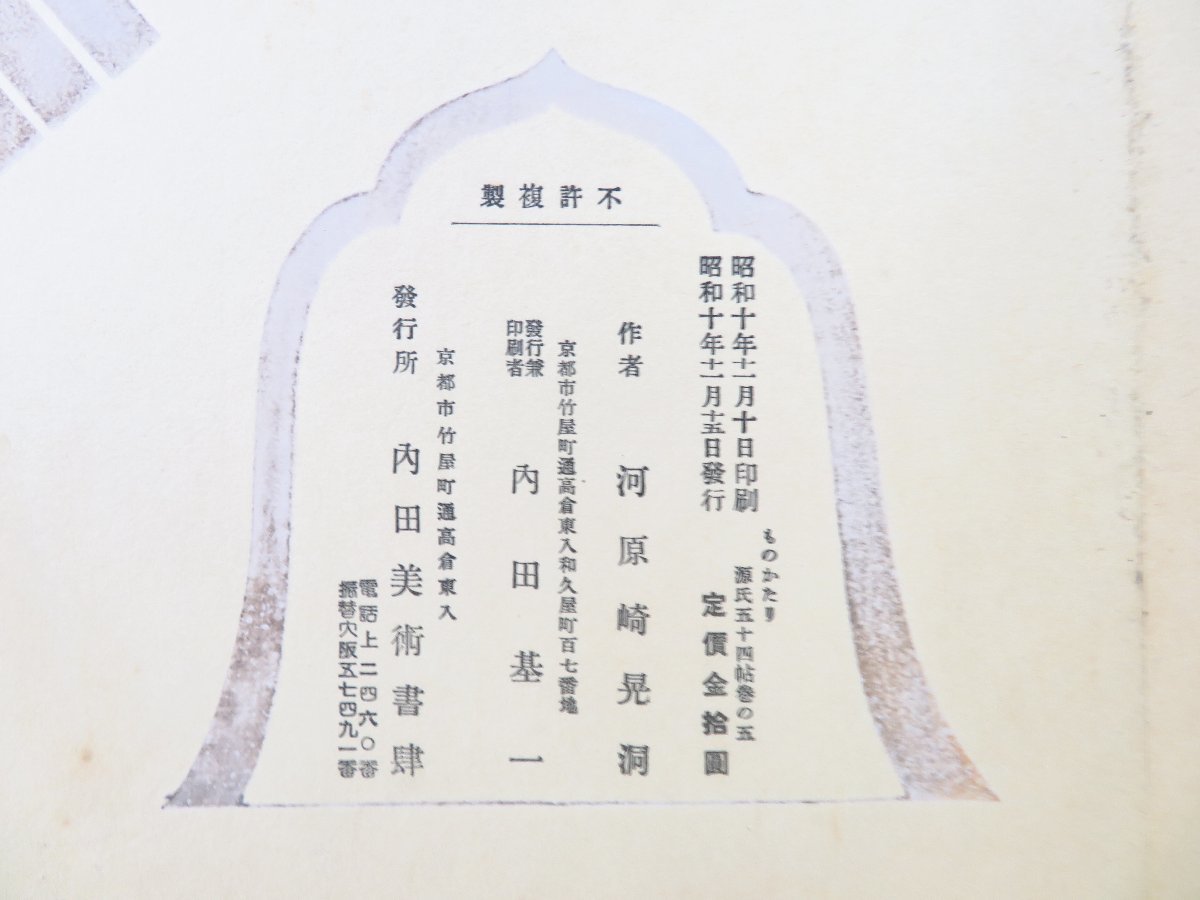 不許複製
ものかたり
源氏五十四帖巻の五
昭和十年十一月十日印刷
昭和十年十一月十五日發行
定價金拾圓
作者 河原崎晃洞
京都市竹屋町通高倉東入和久屋町百七番地
發行兼
印刷者
內田基一
京都市竹屋町通高倉東入
發行所 內田美術書肆
電話上二四六〇番
振替大阪五七四九一番